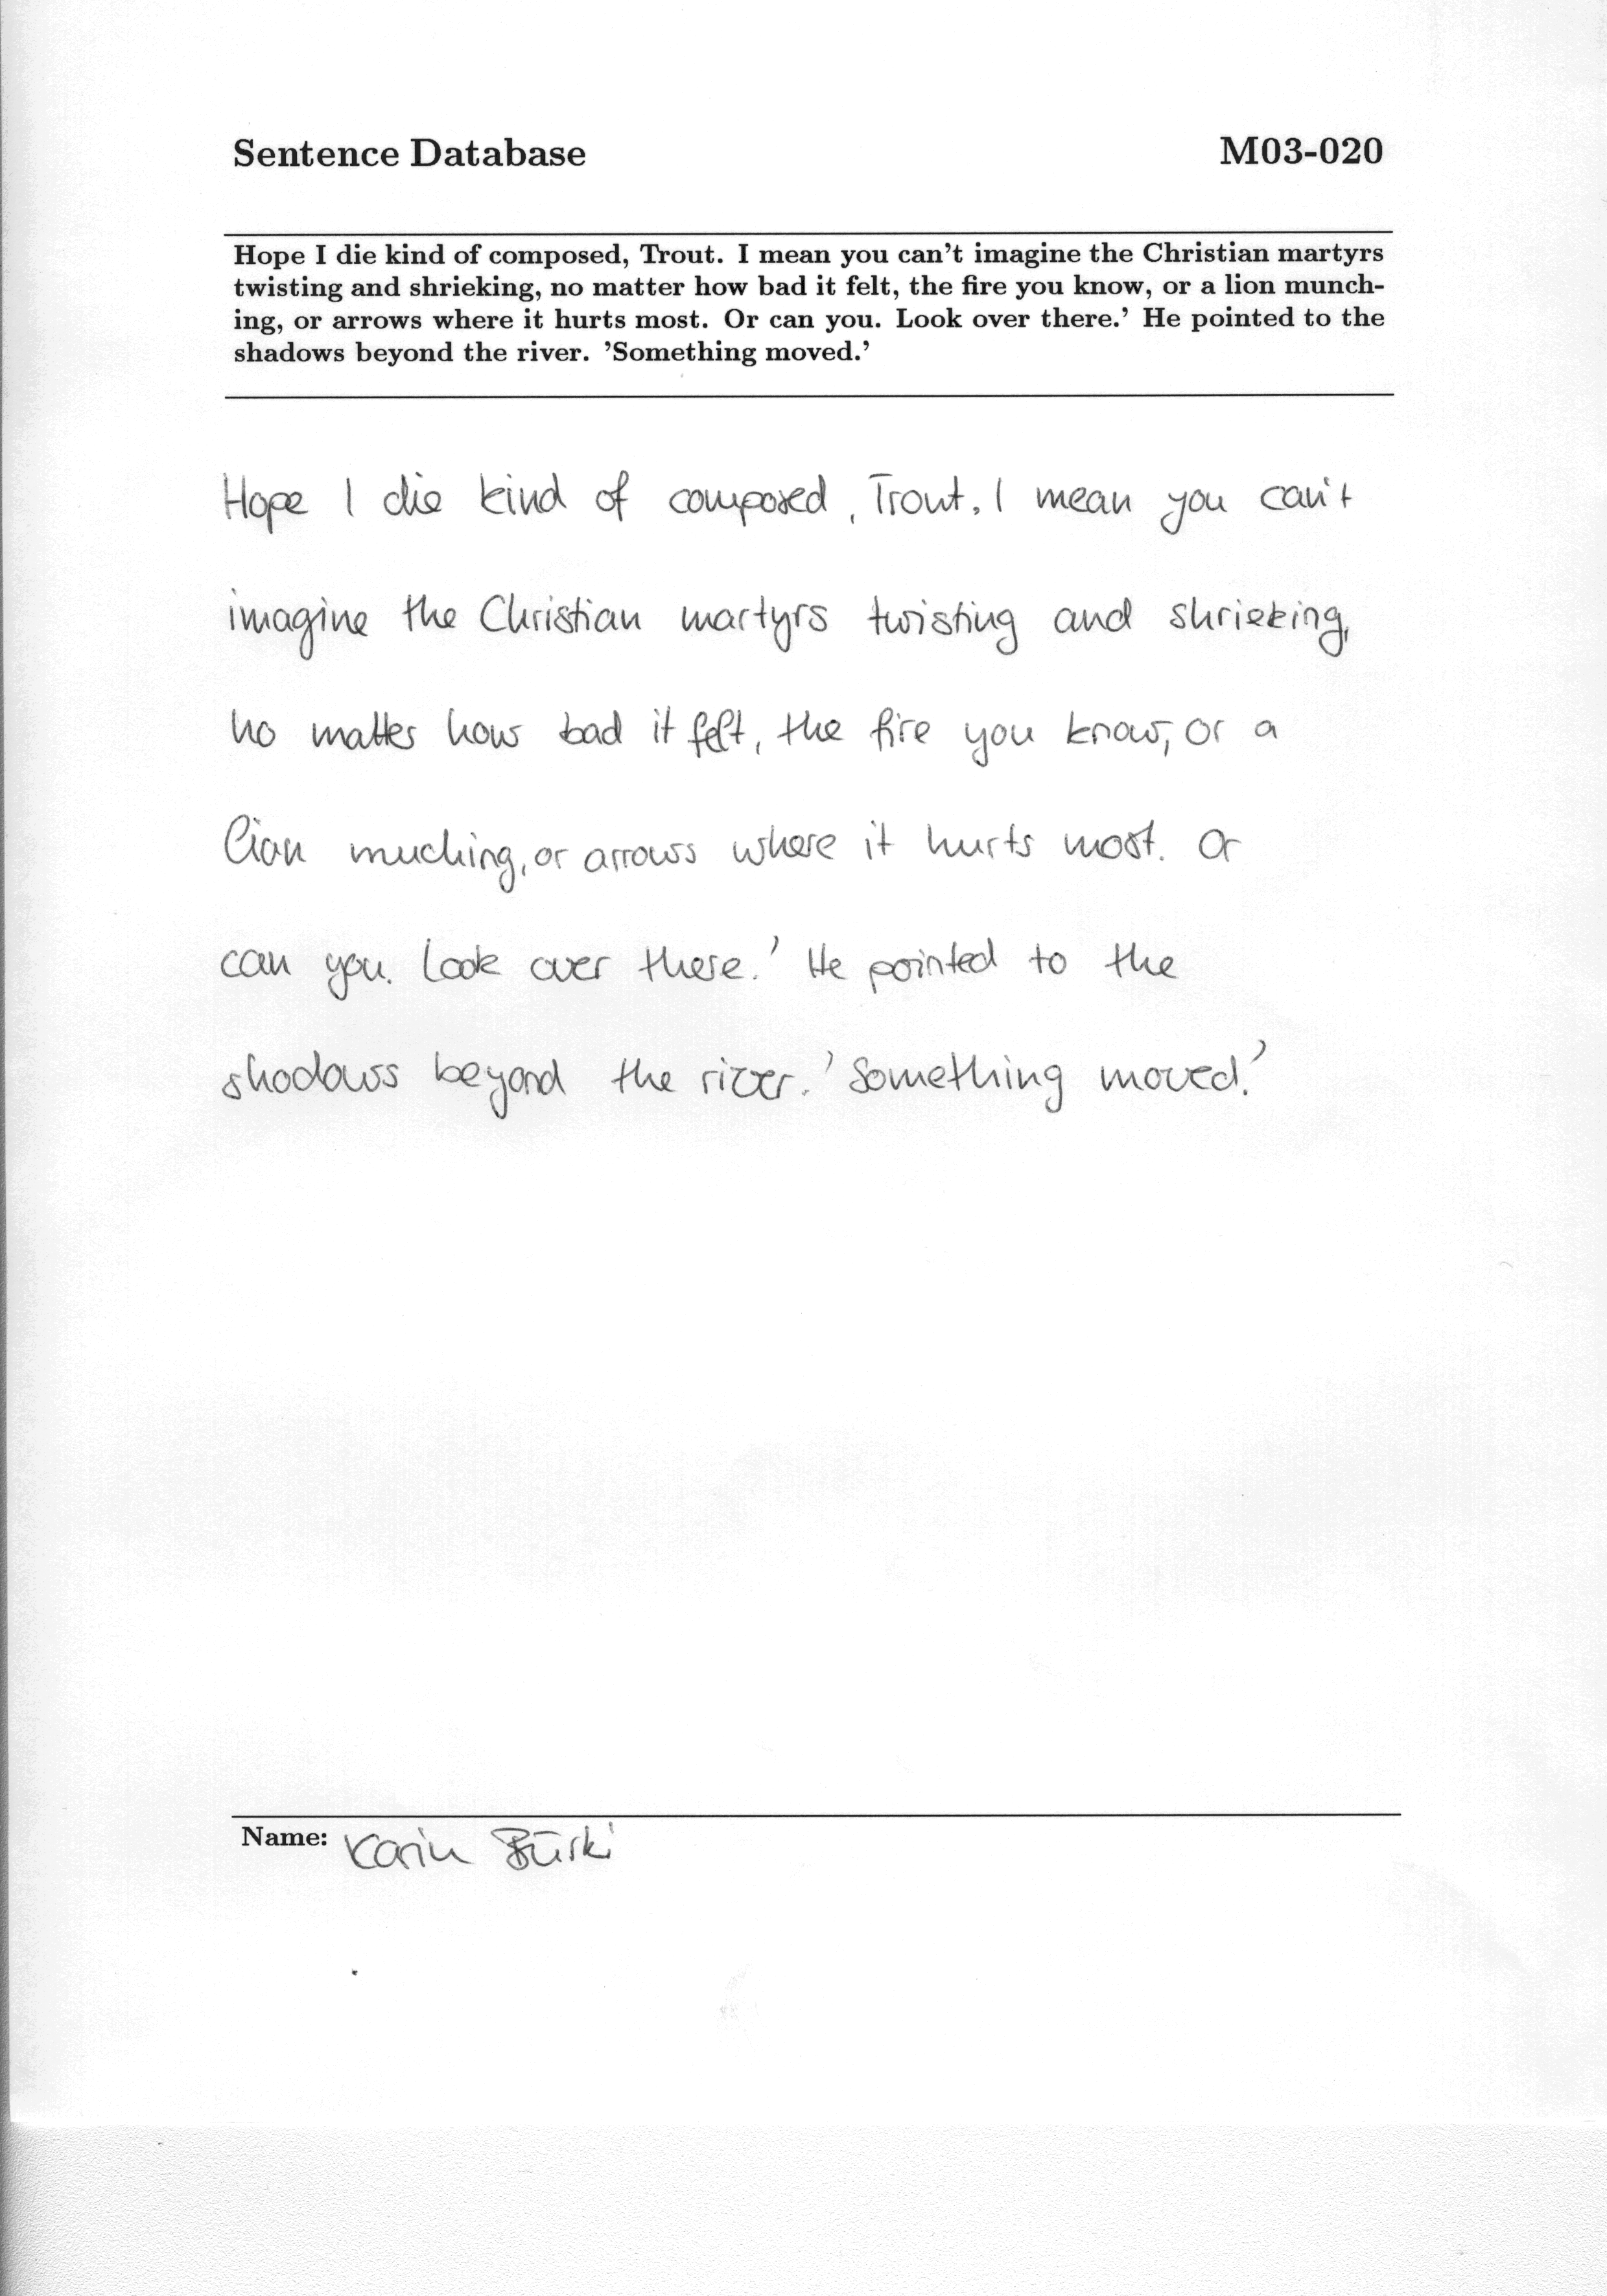 Sentence Database M03-020
Hope I die kind of composed, Trout. I mean you can't imagine the Christian martyrs
twisting and shrieking, no matter how bad it felt, the fire you know, or a lion munch-
ing, or arrows where it hurts most. Or can you. Look over there.' He pointed to the
shadows beyond the river. 'Something moved.'
Hope I die kind of composed, Trout. I mean you can't
imagine the Christian martyrs twisting and shrieking,
no matter how bad it felt, the fire you know, or a
lion muching, or arrows where it hurts most. Or
can you. Look over there.' He pointed to the
shadows beyond the river. 'Something moved.'
Name: Karin Bürki